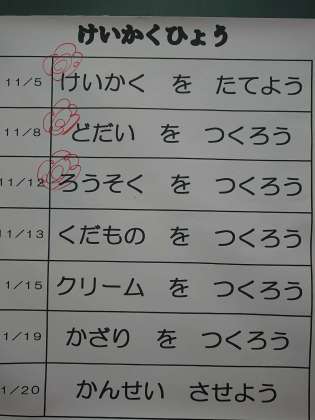 けいかくひょう
11/5 けいかく を たてよう
11/8 どだい を つくろう
11/12 ろうそく を つくろう
11/13 くだもの を つくろう
1/15 クリーム を つくろう
1/19 かざり を つくろう
1/20 かんせい させよう